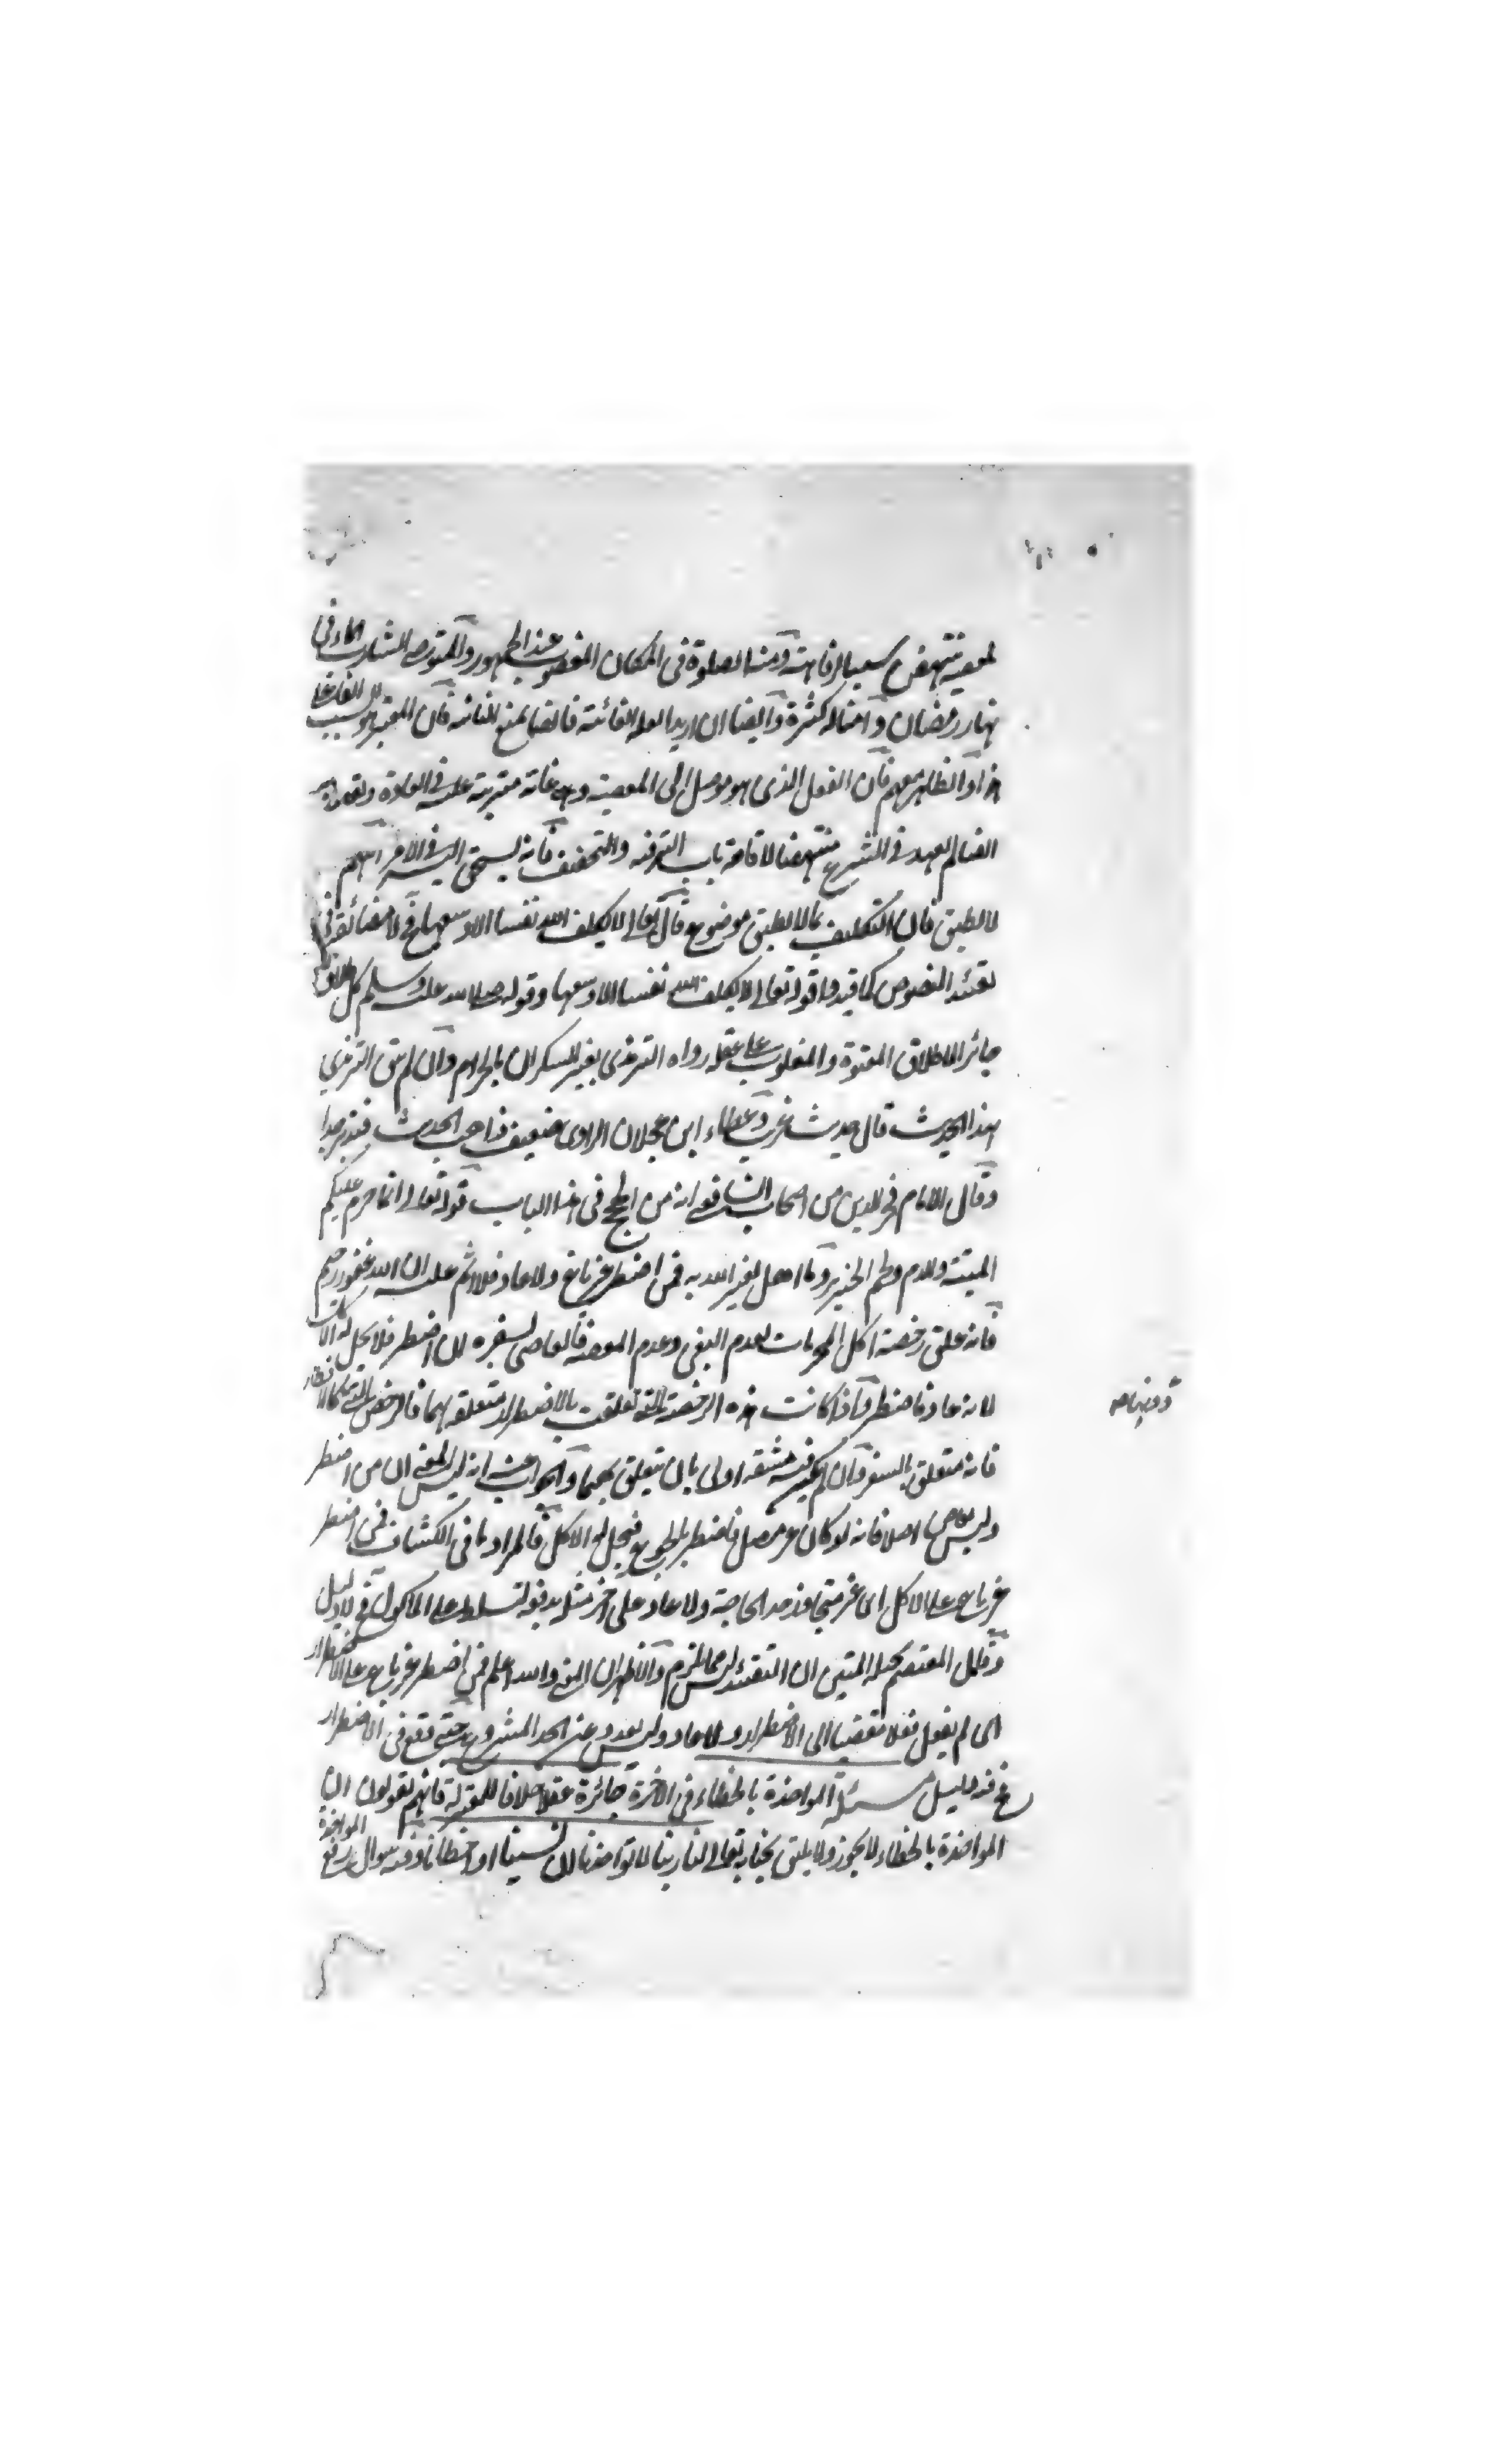 لمعصية تنهض سببا لرفاهته ومنه الصلوة في المكان المغصوب عند الجمهور والمتوجه الشارب الماء في
نهار رمضان وامثاله كثيرة وايضا ان اريد العلة الغائية فانها تمنع الثانية فان المعتبر هو السبب
هذا والظاهر معهم فان الفعل الذي هو موصل الى المعصية وهي غاية مترتبة عليه في العادة
ايضا لم يعهد في الشرع منتهضا لاقامة باب الترفيه والتخفيف فانه يستحق
لا يطيق فان التكليف بما لا يطيق موضوع قال تعالى لا يكلف الله نفسا الا وسعها فلا مضائقة في
تقييد النصوص كما قيدوا قوله تعالى لا يكلف الله نفسا الا وسعها وقوله صلى الله عليه وسلم كل طلاق
جائز الا طلاق المعتوه والمغلوب على عقله رواه الترمذي بغير السكران بالحرام وان لم يثق الترمذي
بهذا الحديث قال حديث غريب وعطاء ابن عجلان الراوي ضعيف ذاهب الحديث فتدبر جدا
وقال الامام فخر الدين من اصحاب الشافعي انه من الحجج في هذا الباب قوله تعالى انما حرم عليكم
الميتة والدم ولحم الخنزير وما اهل لغير الله به فمن اضطر غير باغ ولا عاد فلا اثم عليه ان الله غفور رحيم
فانه علق رخصة اكل المحرمات بعدم البغي وعدم المعصية فالعاصي بسفره ان اضطر فلا يحل له الاكل
لانه عاد فاضطر واذا كانت هذه الرخصة التي تعلقت بالاضطرار متعلقة بهما فالرخص التي كالافطار
فانه متعلق بالسفر وان لم يكن فيه مشقة اولى بان يتعلق بهما والجواب عنه انه ليس المعنى ان من اضطر
وليس بعاص اصلا فانه لو كان غير مصل فاضطر بالجوع فيحل له الاكل فالمراد ما في الكشاف فمن اضطر
غير باغ على الاكل اي غير متجاوز حد الحاجة ولا عاد على اخر مثله بدفعه لتسلط على الماكول فلا دليل
وقال المعتصم بحبله المتين ان التقييد ليس مما يلزم والاظهر ان المعنى والله اعلم فمن اضطر غير باغ على الاضطرار
اي لم يفعل فعلا مفضيا الى الاضطرار ولا عاد وليس بعدو عن الحد المشروع حتى وقع في الاضطرار
فح فيه دليل مسئلة المواخذة بالخطاء في الاخرة جائزة عقلا خلافا للمعتزلة فانهم يقولون ان
المواخذة بالخطاء لا يجوز ولا يليق بجنابه تعالى لنا ربنا لا تواخذنا ان نسينا او اخطأنا وفيه سوال رفع المواخذة